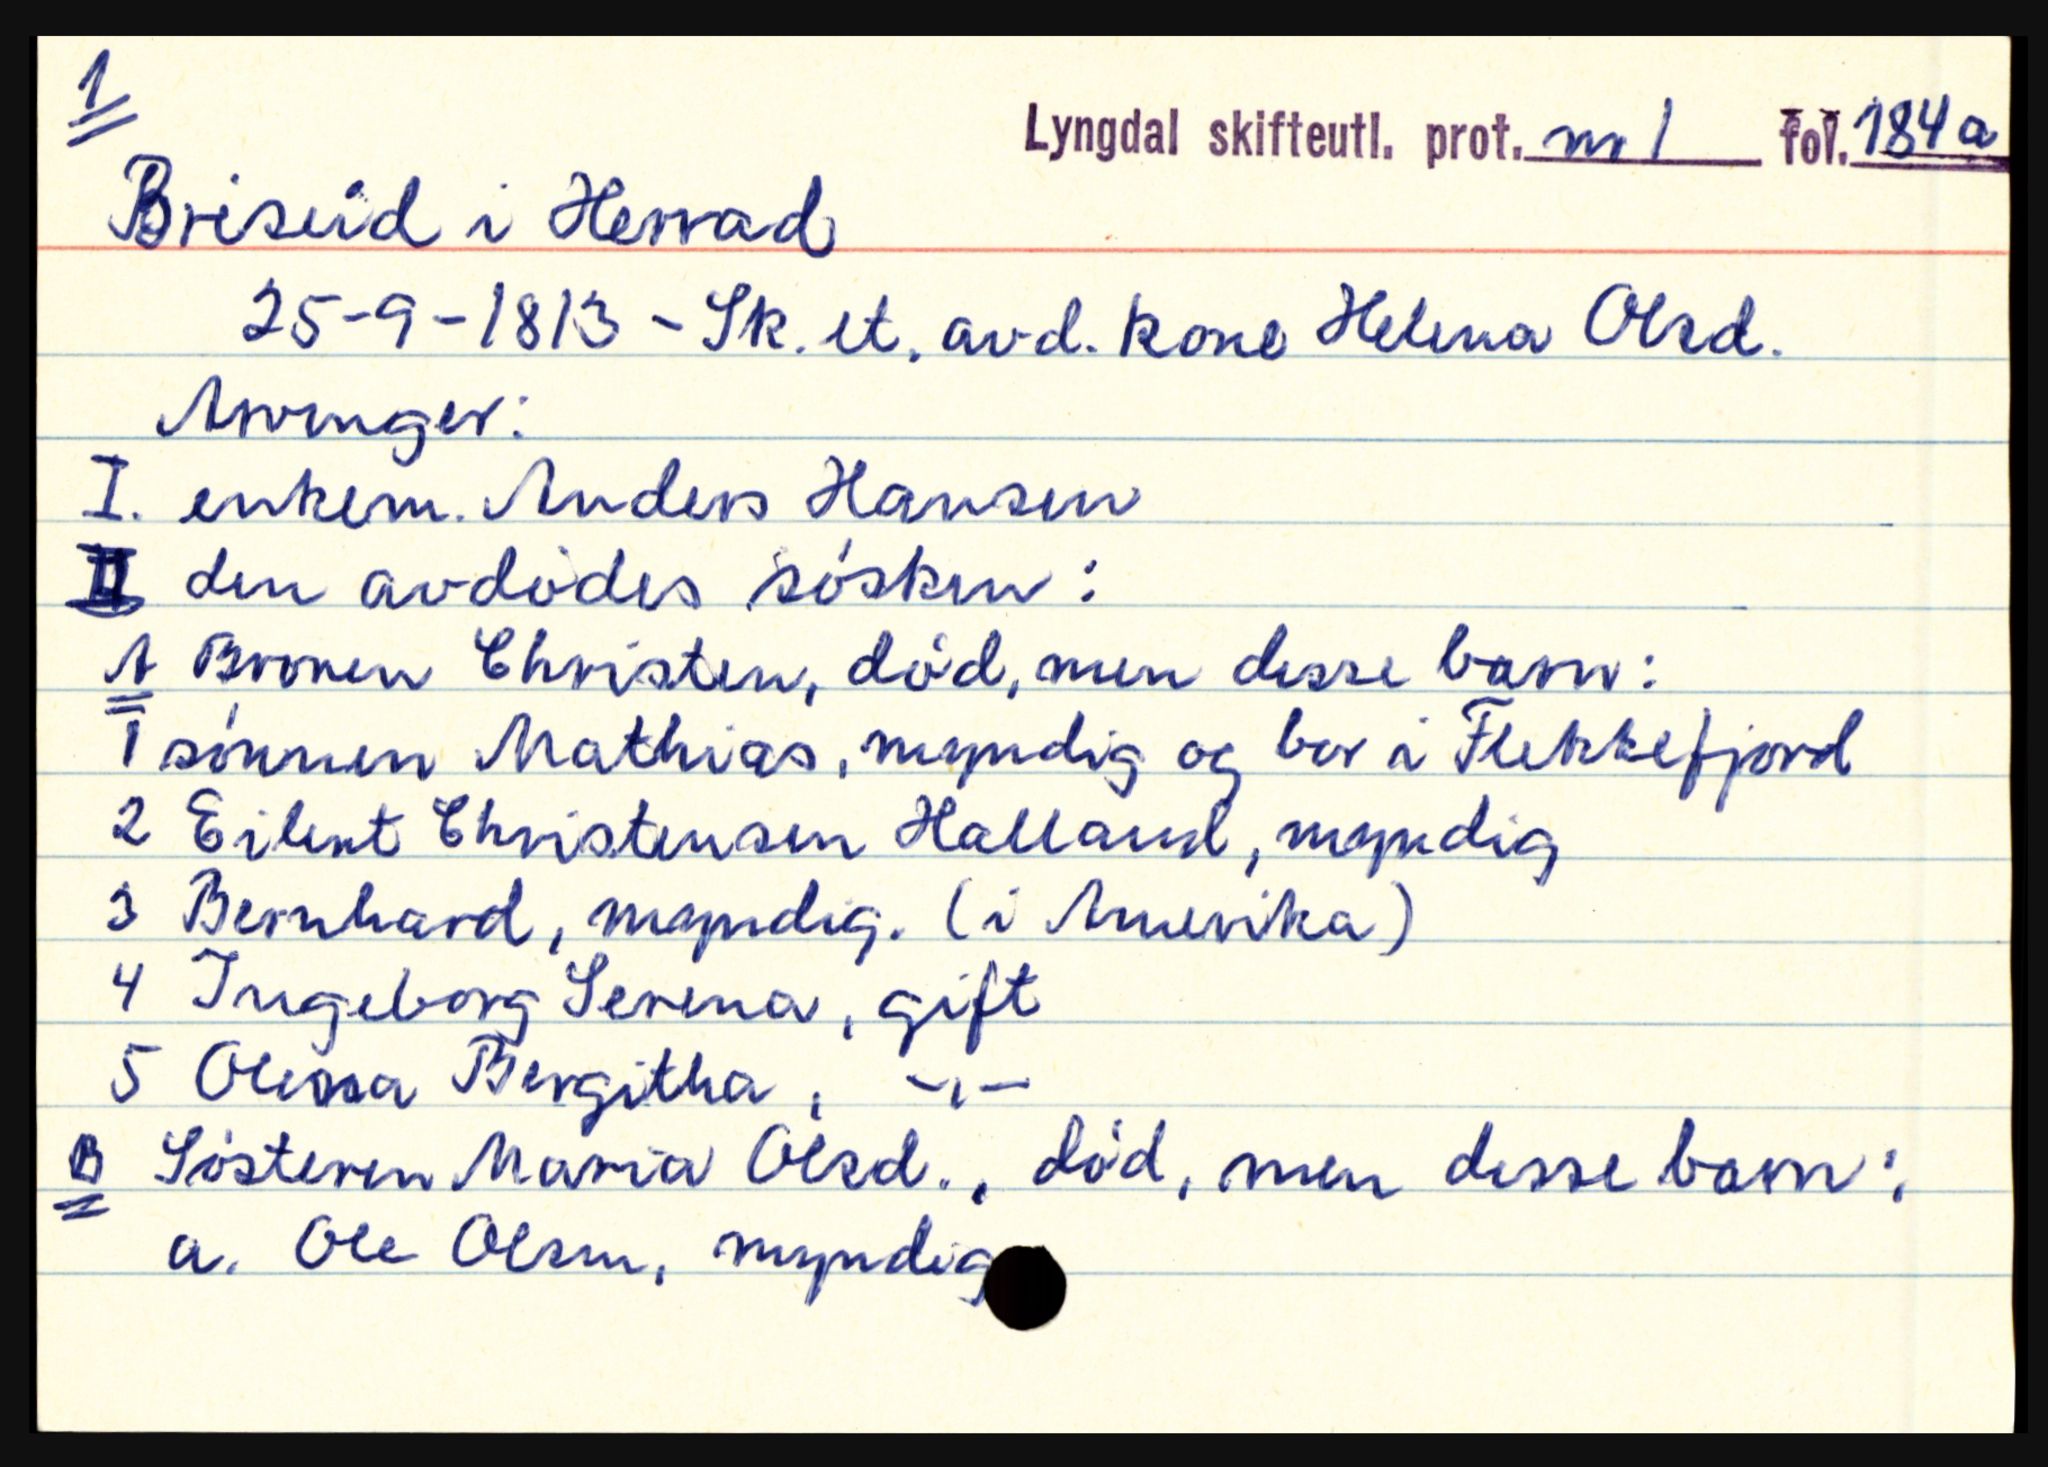 1
Lyngdal skifteutl. prot. nr 1 fol. 184 a
Briseid i Herrad
25-9-1813 - Sk. et. avd. kone Helena Olsd.
Arvinger:
I. enkem. Anders Hansen
II den avdødes søsken:
A Broren Christen, død, men disse barn:
1 sønnen Mathias, myndig og bor i Flekkefjord
2 Eilert Christensen Halland, myndig
3 Bernhard, myndig. (i Amerika)
4 Ingeborg Serina, gift
5 Olena Bergitha, -,-
B Søsteren Maria Olsd., død, men disse barn:
a. Ole Olsen, myndig